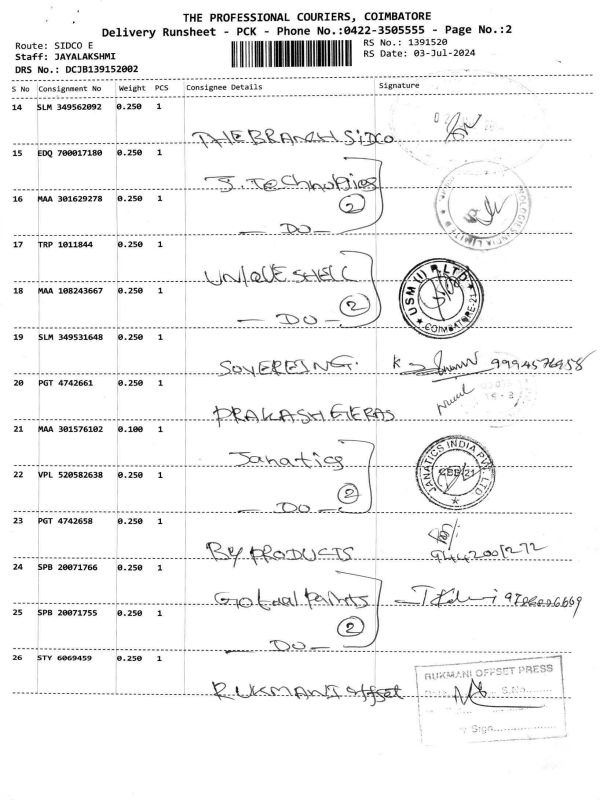 THE PROFESSIONAL COURIERS, COIMBATORE
Delivery Runsheet - PCK - Phone No.:0422-3505555 - Page No.:2
Route: SIDCO E
RS No.: 1391520
Staff: JAYALAKSHMI
RS Date: 03-Jul-2024
DRS No.: DCJB139152002
S No Consignment No Weight PCS Consignee Details Signature
14 SLM 349562092 0.250 1
THE BRANCH SIDCO
15 EDQ 700017180 0.250 1
J. Technologies
16 MAA 301629278 0.250 1
2
— DO —
17 TRP 1011844 0.250 1
UNIQUE SHELL
18 MAA 108243667 0.250 1
2
— DO —
USM (I) P. LTD
COIMBATORE-21
19 SLM 349531648 0.250 1
SOVEREING. K 9994576958
20 PGT 4742661 0.250 1
PRAKASH GERAS
21 MAA 301576102 0.100 1
Janatics
22 VPL 520582638 0.250 1
2
— DO —
JANATICS INDIA PVT. LTD
CBE-21
23 PGT 4742658 0.250 1
BY PRODUCTS
24 SPB 20071766 0.250 1
25 SPB 20071755 0.250 1
2
— DO —
26 STY 6069459 0.250 1
RUKMANI offset
RUKMANI OFFSET PRESS
S.No.
Sign